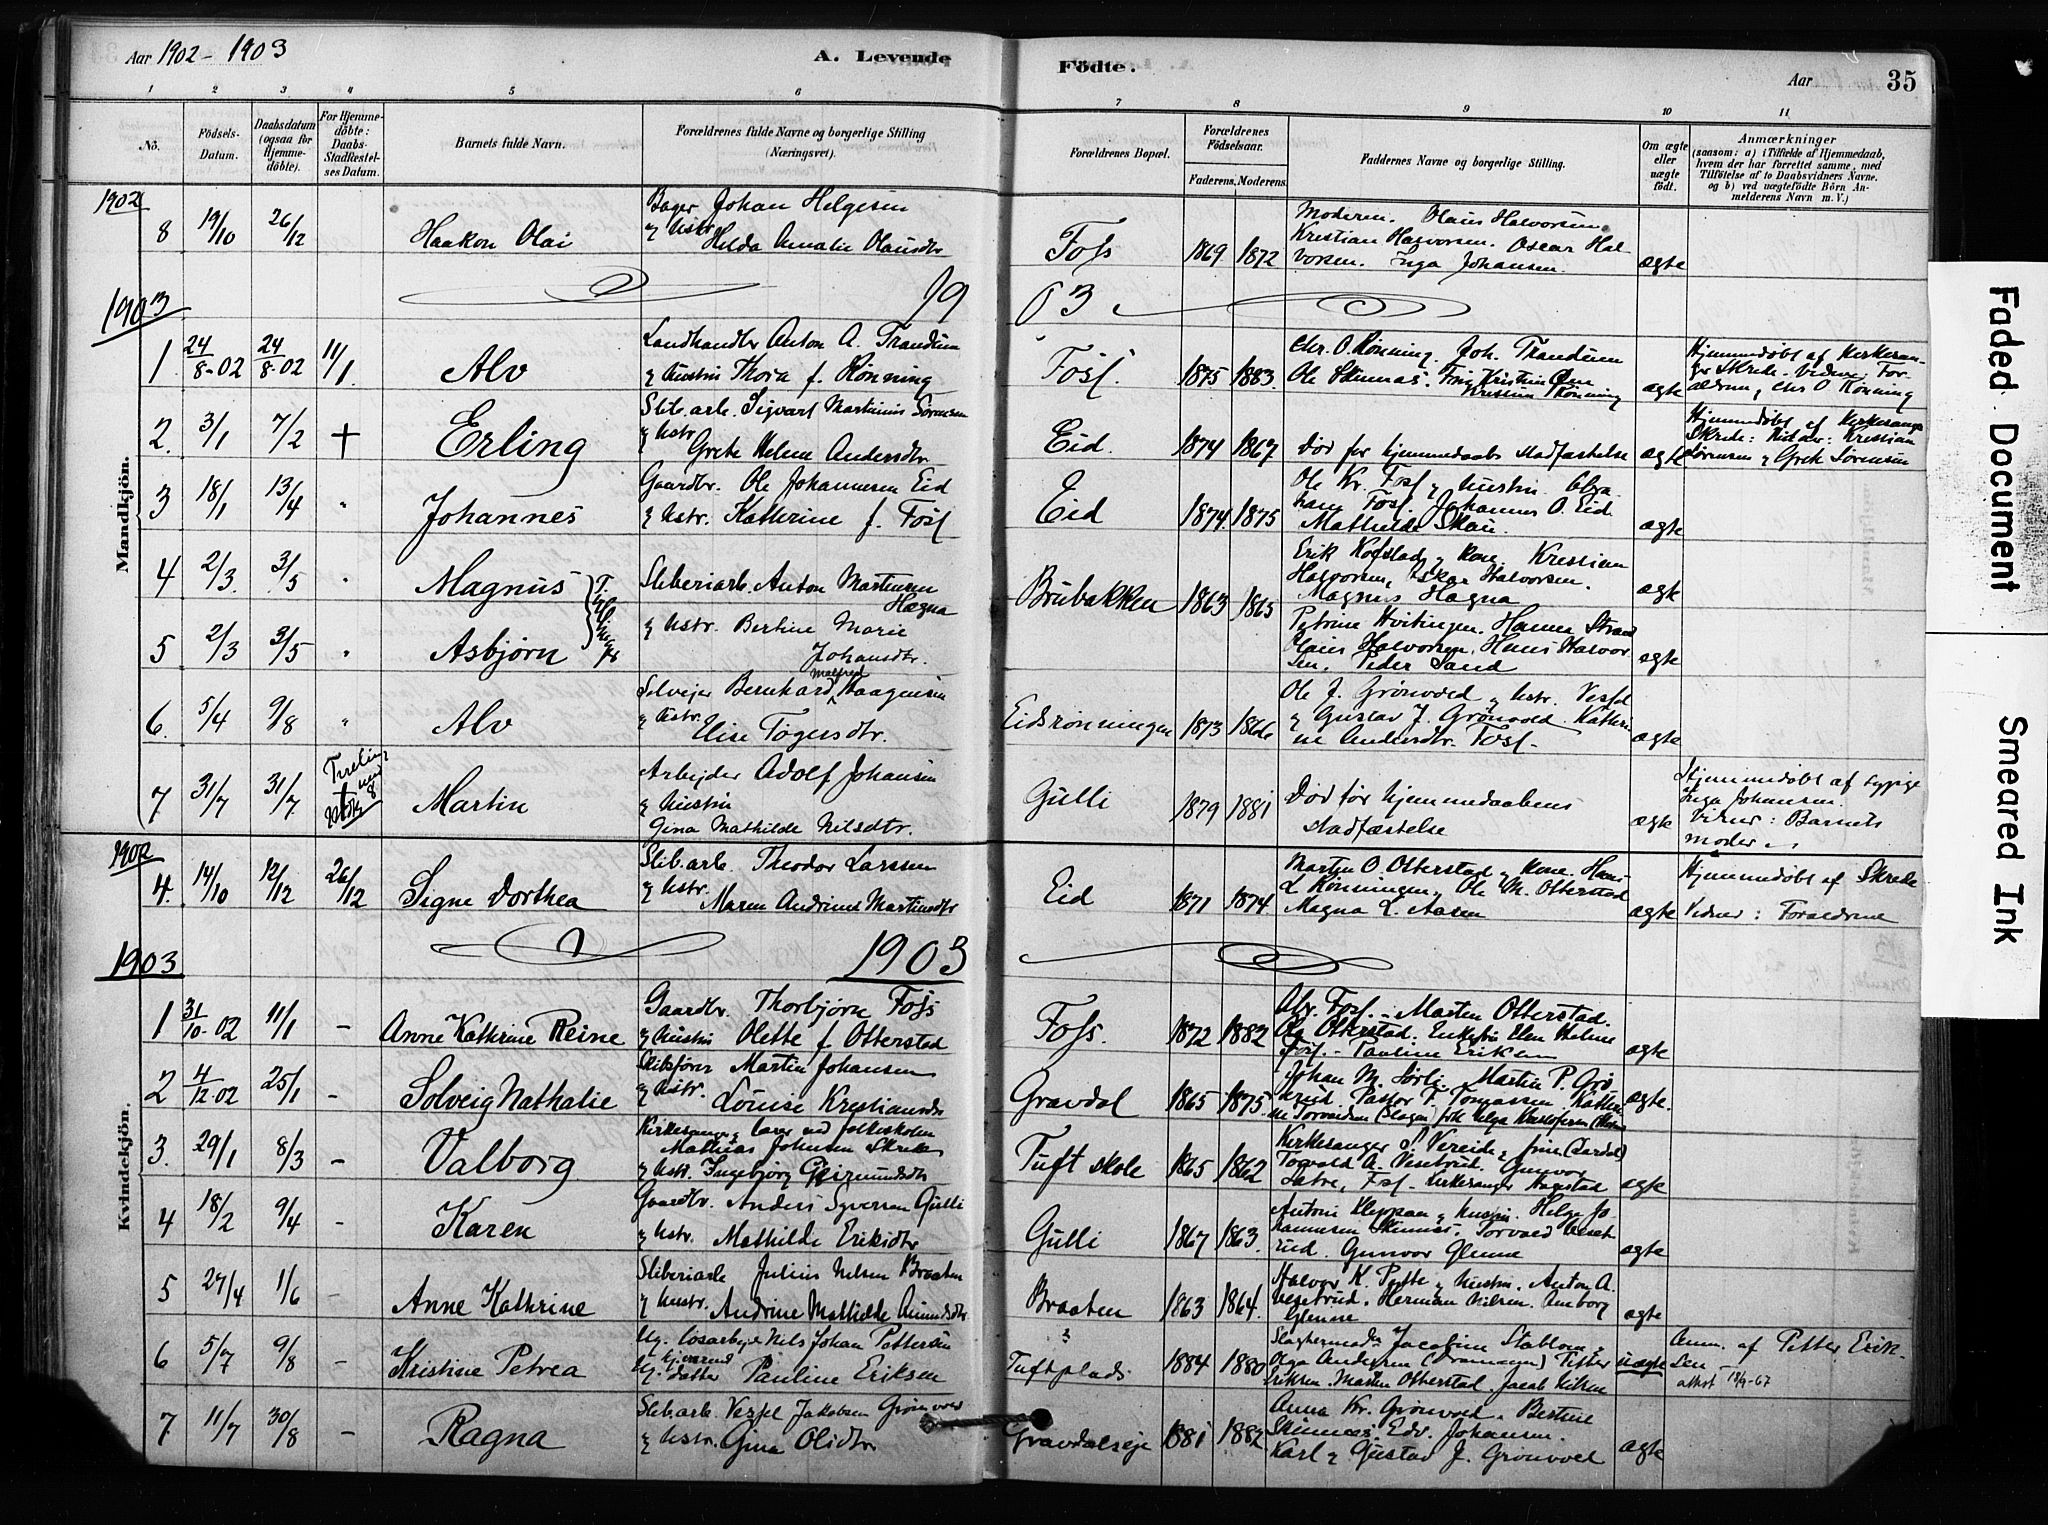 Aar 1902 - 1903
A. Levende
Födte.
Aar
35
1 2 3 4 5 6 7 8 9 10 11
No.
Födsels-Datum.
Daabsdatum (ogsaa for Hjemmedöbte).
For Hjemmedöbte: Daabs-Stadfæstelses Datum.
Barnets fulde Navn.
Forældrenes fulde Navne og borgerlige Stilling (Næringsvei).
Forældrenes Bopæl.
Forældrenes Födselsaar.
Faderens. Moderens.
Faddernes Navne og borgerlige Stilling.
Om ægte eller uægte födt.
Anmærkninger
(saasom: a) i Tilfælde af Hjemmedaab, hvem der har forrettet samme, med Tilföielse af to Daabsvidners Navne, og b) ved uægtefödte Börn Anmelderens Navn m. V.)
Mandkjön.
1902
8 19/10 26/12 Haakon Olai
Bager Johan Helgesen
& Hstr. Hilda Amalie Olausdtr
Foss 1869 1872
Moderen. Olaus Halvorsen
Kristian Halvorsen. Oscar Hal
vorsen. Inga Johansen
ægte
1903
19
03
1. 24/8-02 24/8-02 11/1 Alv
Landhandler Anton A. Trandum
& Hustru Thora f. Rønning
Foss. 1875 1883
Chr. O. Rønning. Joh. Trandum
Ole Skinnes.
ægte
Hjemmedøbt af Kirkesan-
ger Skrede. Vidner: For-
ældrene, Chr O. Rønning
2. 3/1 7/2 + Erling
Slib.arb. Sigvart Martinius Sørensen
& Hstr. Grete Helene Andersdtr.
Eid. 1874 1867
Død før hjemmedaabs stadfæstelse
ægte
Hjemmedøbt af Kirkesanger
Skrede: Vidner: Kristian
Sørensen & Grete Sørensen
3 18/1 13/4 " Johannes
Gaardbr. Ole Johannesen Eid
& Hstr. Kathrine f. Foss
Eid 1874 1875
Ole Kr. Foss & Hustru. Abra
ham Foss. Johannes O. Eid.
Mathilde Skau.
ægte
4 2/3. 3/5 " Magnus
Tvillinger
Sliberiarb. Anton Martinsen
Hægna
Brubakken 1863 1865
Erik Kofstad & Kone. Kristian
Halvorsen, Oskar Halvorsen.
Magnus Hægna
ægte
5 2/3 3/5 " Asbjørn
& Hstr. Bertine Marie
Johansdtr.
Petrine Hvitingen. Hanna Strand
Olaus Halvorsen. Hans Halvor
sen. Peder Sand
ægte
6. 5/4 9/8 " Alv
Selveier Bernhard Malfred Haagensen
& Hstr. Elise Tøgersdtr.
Eidsrønningen 1873 1866
Ole J. Grønvold & Hstr. Vessel
& Gustav J. Grønvold. Kathri
ne Andersdtr. Foss.
ægte
7. 31/7 31/7. Martin
Arbejder Adolf Johansen
& Hustru
Gina Mathilde Nilsdtr.
Gulli 1879 1881
Død før hjemmedaabens
stadfæstelse
ægte
Hjemmedøbt af
Inga Johansen.
Vidner: Barnets
moder
Kvindekjön.
1902
4. 14/10 12/12 26/12 Signe Dorthea
Slib.arb. Theodor Larssen
& Hstr. Maren Andrine Martinsdtr
Eid 1871 1874
Martin O. Otterstad & Kone. Hans
L. Rønningen. Ole M. Otterstad
Magna L. Aasen
ægte
Hjemmedøbt af Skrede
Vidner: Forældrene
1903
1903
1 31/10-02 11/1 - Anne Kathrine Reine
Gaardbr. Thorbjørn Foss
& Hustru Olette f Otterstad
Foss. 1872 1882
Abr. Foss. - Marten Otterstad.
Ole Otterstad. Enkefru Elen Helene
Foss. - Pauline Eriksen
ægte
2 4/12-02 25/1 - Solveig Nathalie
Skibsfører Martin Johansen
& Hstr. Louise Kristiansdtr
Gravdal 1865 1875
Johan M. Sørli. Martin P. Grø
Pastor F. Tomassen
ægte.
3. 29/1 8/3 - Valborg
Kirkesanger & lærer ved folkeskolen
Mathias Johnsen Skrede
& Hstr. Ingebjørg Geirmundsdtr
Tuft skole 1865 1862
Kirkesanger S. Vereide & frue (Lardal)
Torvald A. Vesetrud. Gunvor
Foss - Kirkesanger
ægte
4 18/2 9/4 - Karen
Gaardbr. Anders Syversen Gulli
& Hstr. Mathilde Eriksdtr
Gulli 1867 1863
Antoni Kleppan & Hustru. Helge Jo
hannesen Skinnes. Torvald Veset
rud. Gunvor Glenne
ægte
5 27/4 1/6 - Anne Kathrine
Sliberiarb Julius Nilsen Braaten
& Hustr. Andrine Mathilde Amundsdtr
Braaten 1863 1864
Halvor K. Pytte & Hustru. Anton A.
Vesetrud. Herman Nilsen. Amborg
Glenne
ægte
6 5/7 9/8 - Kristine Petrea
Ug. løsarbejder Nils Johan Petterson
Ug. datter Pauline Eriksen
Tuftplads 1884 1880
Jacobine
Olga Andersen (Drammen) Petter
Eriksen. Marten Otterstad. Jacob Nilsen
uægte
Anm. af Petter Erik-
sen
attest 18/9-67
7. 11/7 30/8 - Ragna
Slib.arb. Vessel Jakobsen Grønvold
& Hstr. Gina Olsdtr
Gravdalseje 1881 1882
Anna Kr. Grønvold. Bertine
Skinnes. Edv. Johansen.
Karl & Gustav J. Grønvold
ægte
Faded Document
Smeared Ink